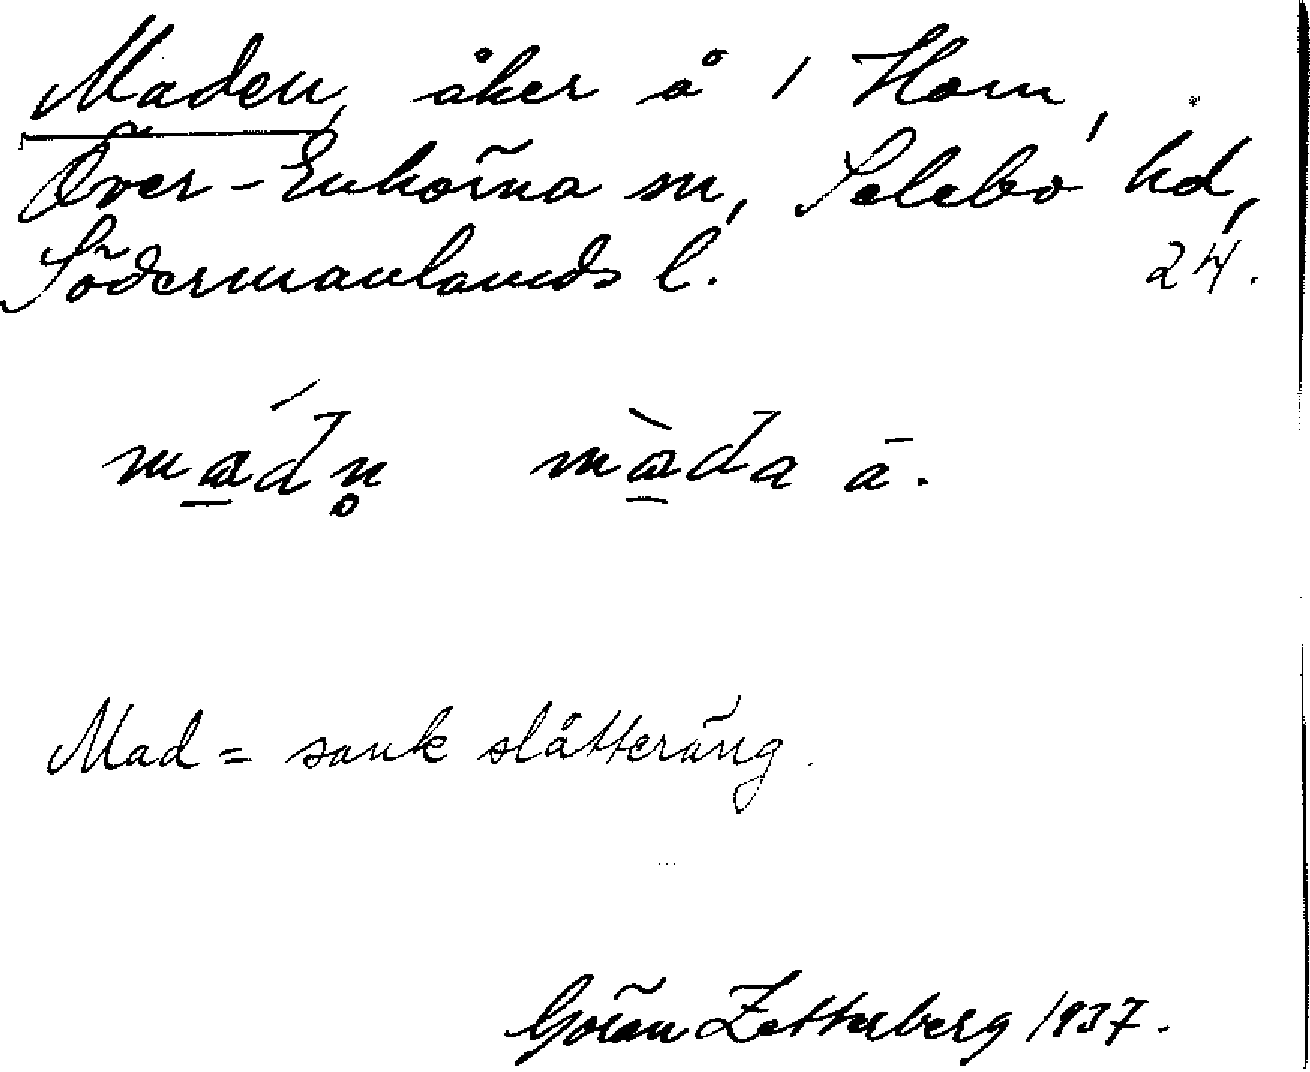 Maden, åker å 1 Horn,
Över-Enhörna sn, Selebo hd,
Södermanlands l. 24.
mádn̥ màda ā.
Mad = sank slåtteräng.
Göran Zetterberg 1937.